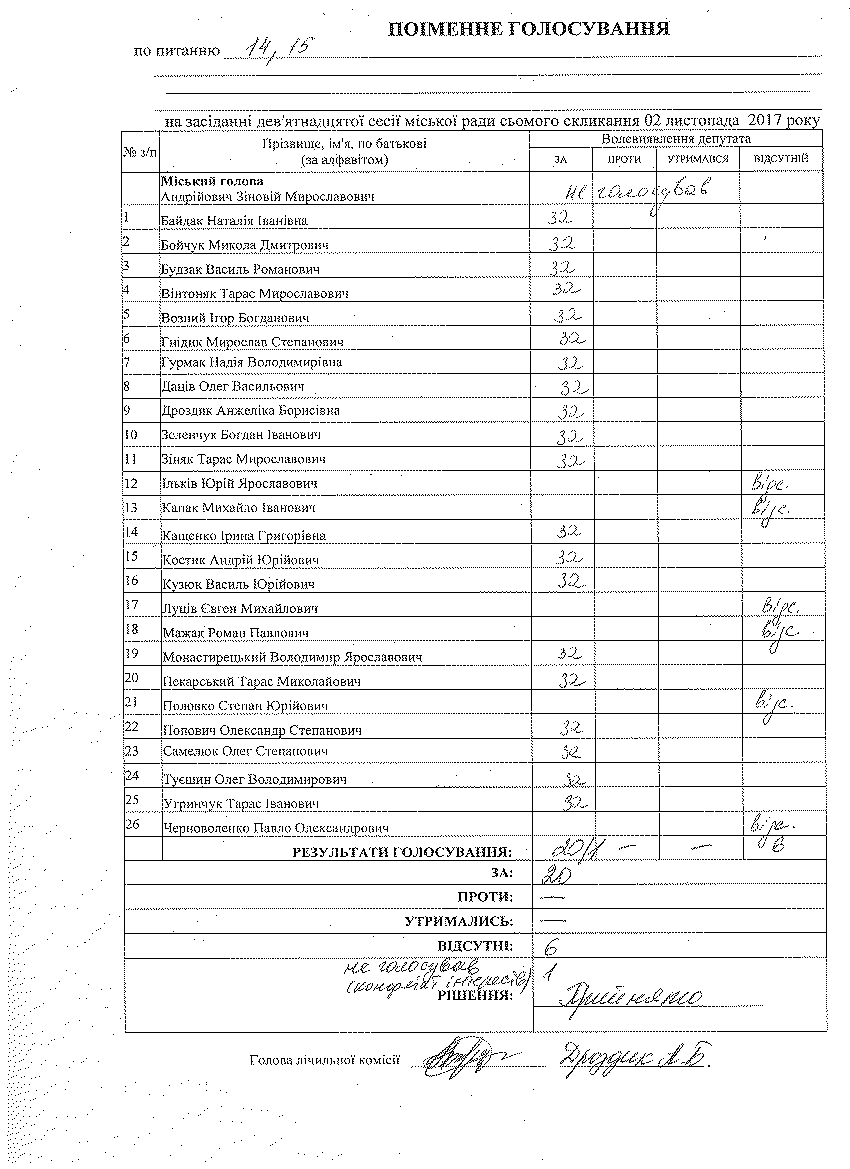 ПОІМЕННЕ ГОЛОСУВАННЯ
по питанню 14, 15
на засіданні дев'ятнадцятої сесії міської ради сьомого скликання 02 листопада 2017 року
№ з/п Прізвище, ім'я, по батькові (за алфавітом) Волевиявлення депутата
ЗА ПРОТИ УТРИМАВСЯ ВІДСУТНІЙ
Міський голова
Андрійович Зіновій Мирославович не голосував
1 Байдак Наталія Іванівна 32
2 Бойчук Микола Дмитрович 32
3 Будзак Василь Романович 32
4 Вінтоняк Тарас Мирославович 32
5 Возний Ігор Богданович 32
6 Гнідик Мирослав Степанович 32
7 Гурмак Надія Володимирівна 32
8 Даців Олег Васильович 32
9 Дроздик Анжеліка Борисівна 32
10 Зеленчук Богдан Іванович 32
11 Зіняк Тарас Мирославович 32
12 Ільків Юрій Ярославович відс.
13 Капак Михайло Іванович відс.
14 Кащенко Ірина Григорівна 32
15 Костик Андрій Юрійович 32
16 Кузюк Василь Юрійович 32
17 Луців Євген Михайлович відс.
18 Мажак Роман Павлович відс.
19 Монастирецький Володимир Ярославович 32
20 Пекарський Тарас Миколайович 32
21 Половко Степан Юрійович відс.
22 Попович Олександр Степанович 32
23 Самелюк Олег Степанович 32
24 Туєшин Олег Володимирович 32
25 Угринчук Тарас Іванович 32
26 Черноволенко Павло Олександрович відс.
РЕЗУЛЬТАТИ ГОЛОСУВАННЯ: 20/1 — — 6
ЗА: 20
ПРОТИ: —
УТРИМАЛИСЬ: —
ВІДСУТНІ: 6
не голосував 1
(конфлікт інтересів)
РІШЕННЯ: Прийнято
Голова лічильної комісії Дроздик А.Б.